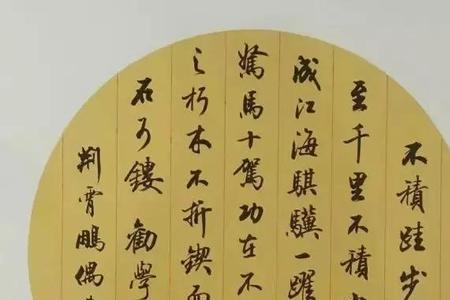 不積跬步
至千里不積
成江海騏驥一躍
駑馬十駕功在不
之朽木不折鍥而
石可鏤 勸學
荊霄鵬偶